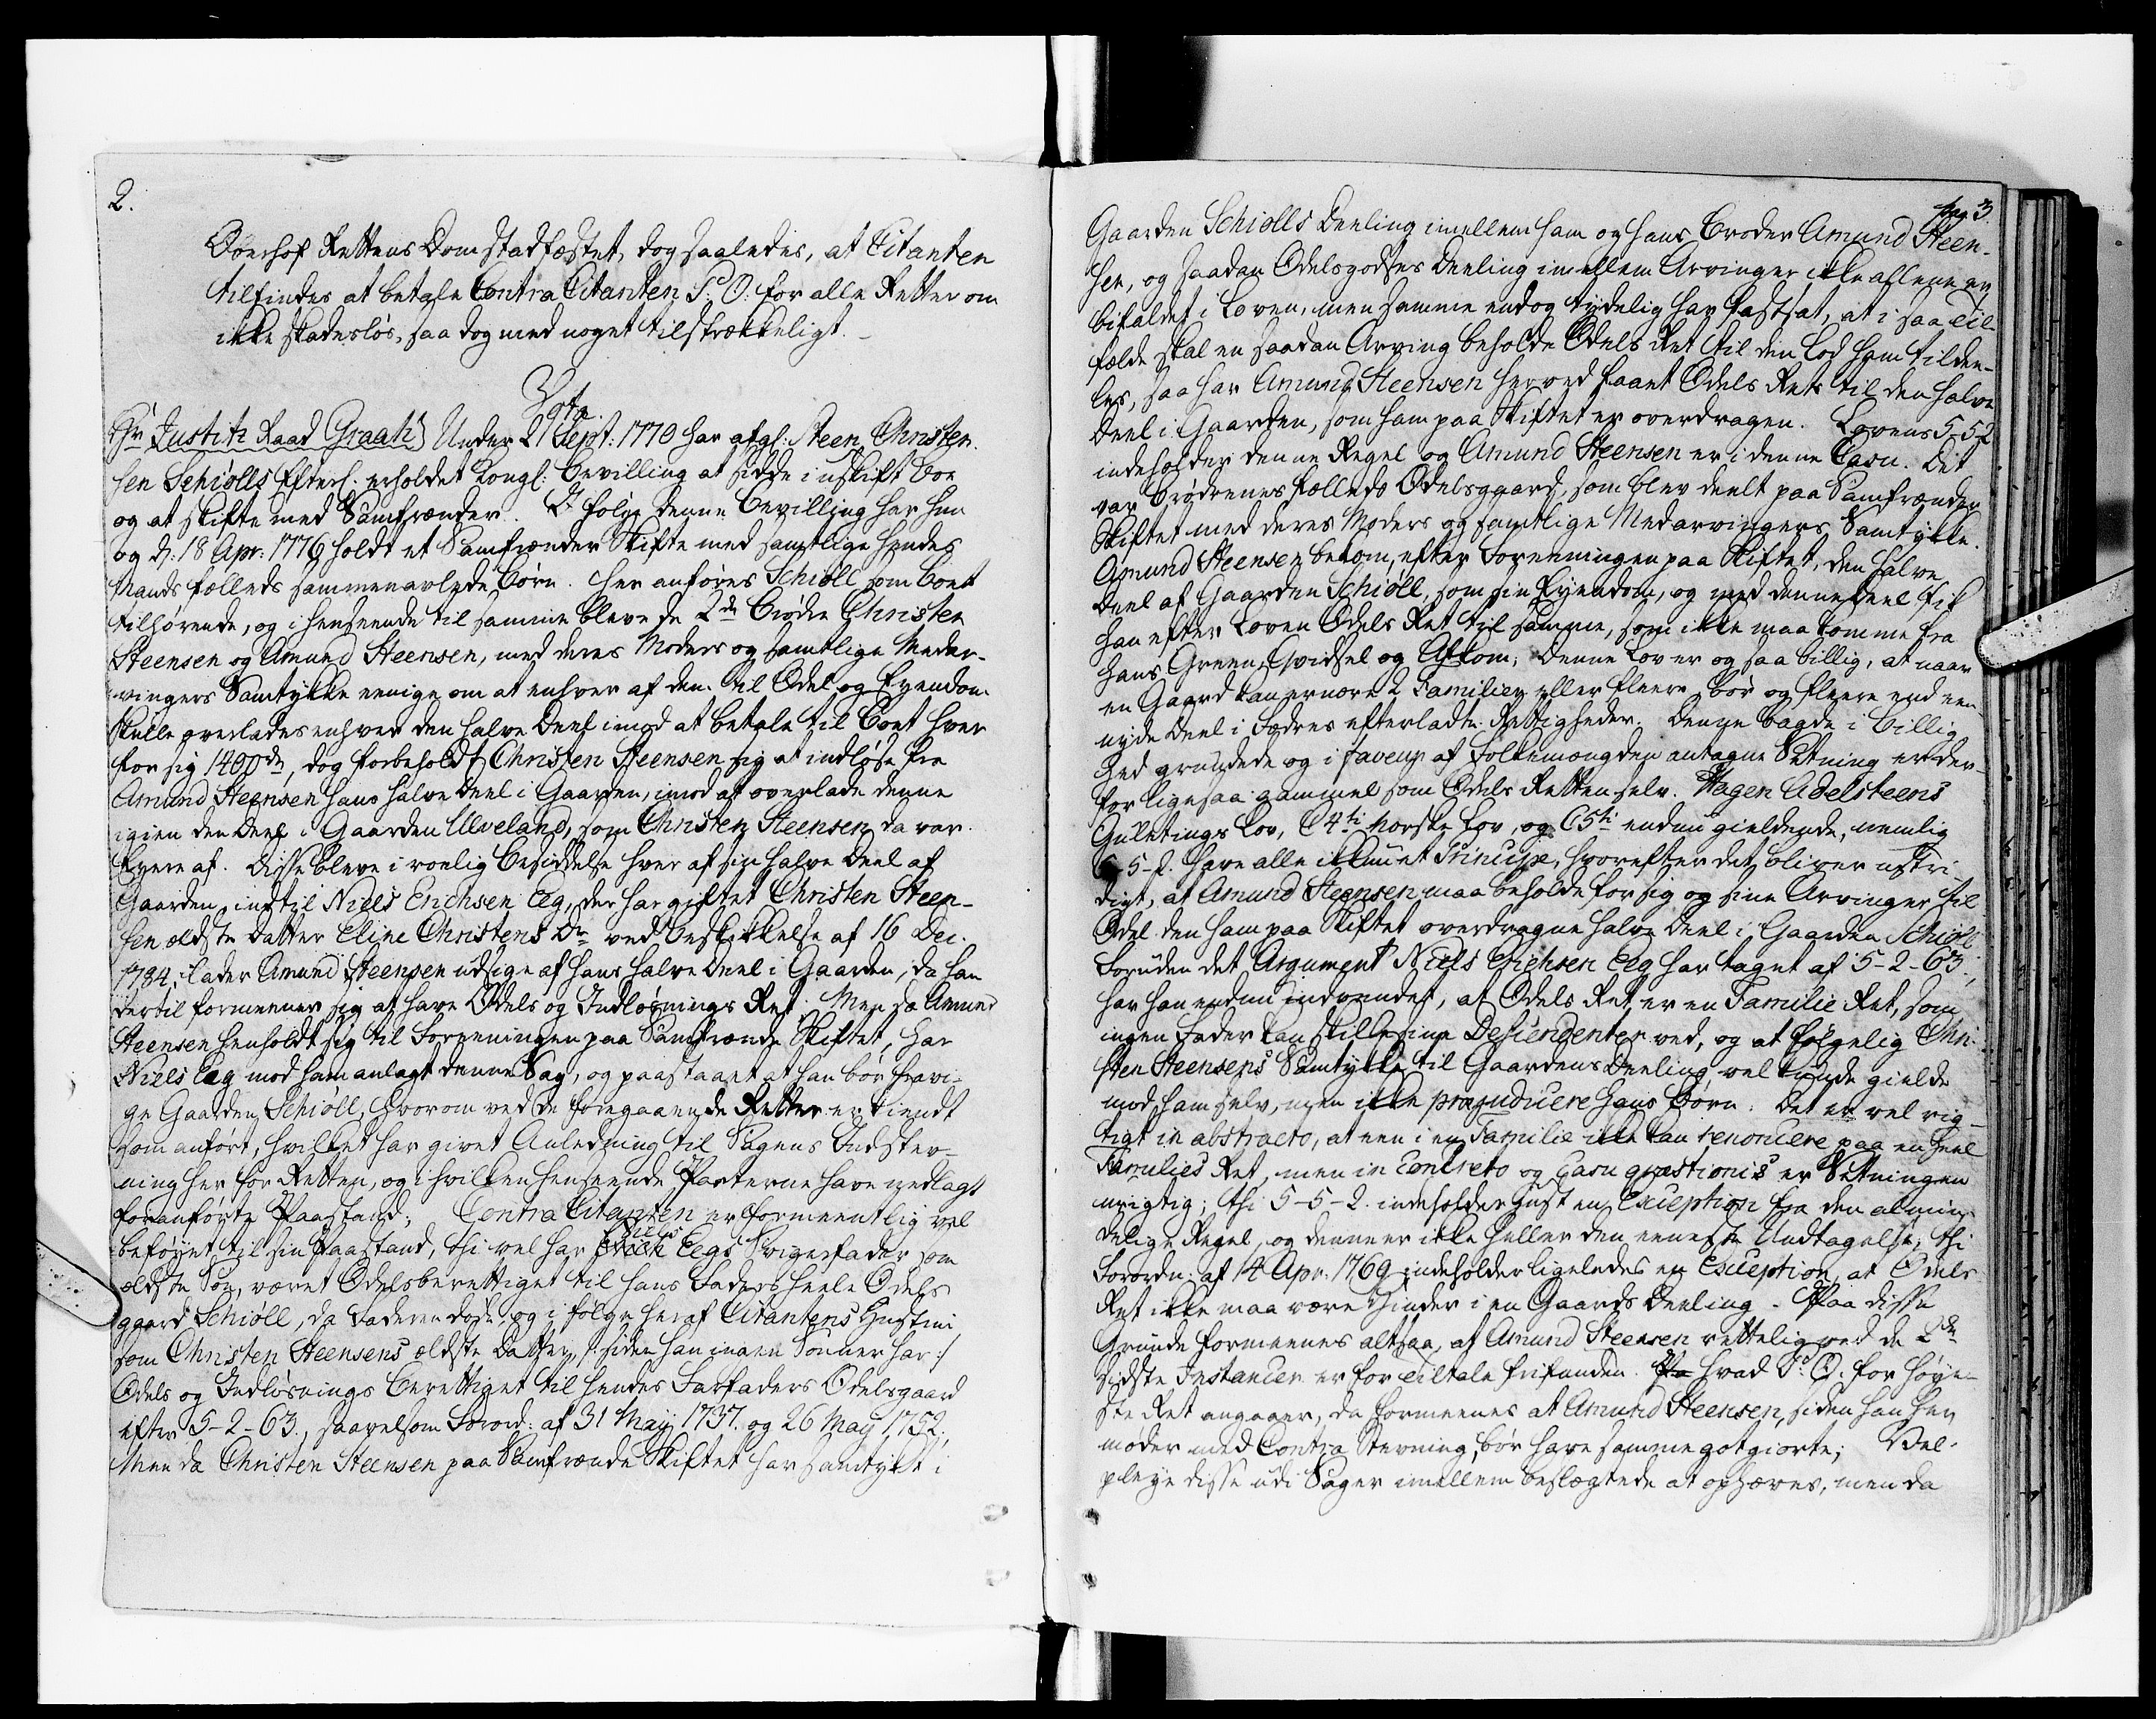 2.
Overhof Rettens Dom stadfæstet, dog saaledes, at Citanten
tilfindes at betale Contra Citanten P: O: for alle Retter om
ikke skadesløs, saa dog med noget tilstrækkeligt.
Vota.
Hr Justitz Raad Graah) Under 21 Sept: 1770 har afgl: Steen Christen-
sen Schiølls Efterl: erholdet Kongl: Bevilling at sidde i uskift Boe
og at skifte med Samfrænder. I følge denne Bevilling har hun
og d: 18 Apr: 1776 holdt et Samfrænder Skifte med samtlige hendes
Mands fælleds sammenavlede Børn. Her anføres Schiøll som Boet
tilhørende, og i henseende til samme bleve de 2de Brødre Christen
Steensen og Amund Steensen, med deres Moders og samtlige Medar-
vingers Samtykke eenige om at enhver af dem til Odel og Eyendom
skulle overlades enhver den halve Deel imod at betale til Boet hver
for sig 1400 dr, dog forbeholdt Christen Steensen sig at indløse fra
Amund Steensen hans halve Deel i Gaarden, imod at overlade denne
igien den Deel i Gaarden Ulveland, som Christen Steensen da var
Eyere af. Disse bleve i roelig Besiddelse hver af sin halve Deel af
Gaarden, indtil Niels Erichsen Eeg, der har giftet Christen Steen-
sens ældste Datter Eline Christens Dr ved Beskikkelse af 16 Dec:
1784, lader Amund Steensen udsige af hans halve Deel i Gaarden, da han
dertil formeener sig at have Odels og Indløsnings Ret. Men da Amund
Steensen henholdt sig til Foreeningen paa Samfrænde Skiftet, har
Niels Eeg mod ham anlagt denne Sag, og paastaaet at han bør fravi-
ge Gaarden Schiøll, hvorom ved de foregaaende Retter er kiendt
som anført, hvilket har givet Anledning til Sagens Indstev-
ning her for Retten, og i hvilken henseende Parterne have nedlagt
foranførte Paastand; Contra Citanten er formeentlig vel
beføyet til sin Paastand, thi vel har Niels Eegs Svigerfader som
ældste Søn, været Odelsberettiget til hans Faders heele Odels
gaard Schiøll, da Faderen døde, og i følge heraf Citantens Hustrue
som Christen Steensens ældste Datter /: siden han ingen Sønner har :/
Odels og Indløsnings berettiget til hendes Farfaders Odelsgaard
efter 5-2-63., saavelsom Forord: af 31 May 1737. og 26 May 1752.
Men da Christen Steensen paa Samfrænde Skiftet har samtykt i
pag. 3.
Gaarden Schiølls Deeling imellem ham og hans Broder Amund Steen-
sen, og saadan Odelsgodses Deeling imellem Arvinger ikke allene er
bifaldet i Loven, men samme endog tydelig har fastsat, at i saa Til-
fælde skal en saadan Arving beholde Odels Ret til den Lod ham tildee-
les, saa har Amund Steensen herved faaet Odels Ret til den halve
Deel i Gaarden, som ham paa Skiftet er overdragen. Lovens 5-5-2
indeholder denne Regel og Amund Steensen er i denne Casu. Det
var Brødrenes fælleds Odelsgaard, som blev deelt paa Samfrænder
Skiftet med deres Moders og samtlige Medarvingers Samtykke.
Amund Steensen bekom, efter Foreeningen paa Skiftet, den halve
Deel af Gaarden Schiøll, som sin Eyendom, og med denne Deel fik
han efter Loven Odels Ret til samme, som ikke maa komme fra
hans Green, Qvidsel og Afkom; Denne Lov er og saa billig, at naar
en Gaard kan ernære 2 Familier eller fleere, bør og fleere end een
nyde Deel i Fædres efterladte Rettigheder. Denne baade i Billig-
hed grundede og i faveur af Folkemængden antagne Sætning er der-
for ligesaa gammel som Odels Retten selv. Hagen Adelsteens
Guletings Lov, C 4ti Norske Lov, og C 5ti endnu gieldende, nemlig
5-5-2. have alle ikkun et Princip, hvorefter det bliver ustri-
digt, at Amund Steensen maa beholde for sig og sine Arvinger til
Odel den ham paa Skiftet overdragne halve Deel i Gaarden Schiøll
Foruden det Argument Niels Erichsen Eeg har taget af 5-2-63.,
har han endnu indvendet, at Odels Ret er en Familie Ret, som
ingen Fader kan skille sine Descendenter ved, og at følgelig Chri-
sten Steensens Samtykke til Gaardens Deeling vel kunde gielde
mod ham selv, men ikke præjudicere hans Børn. Det er vel rig-
tigt in abstracto, at een i en Familie ikke kan renoncere paa en heel
Families Ret, men in Concreto og Casu qvæstionis er Sætningen
urigtig; thi 5-5-2. indeholder just en Exception fra den almin-
delige Regel, og denne er ikke heller den eeneste Undtagelse; thi
Forordn: af 14 Apr: 1769 indeholder ligeledes en Exception, at Odels
Ret ikke maa være Hinder i en Gaards Deeling. Paa disse
Grunde formeenes altsaa, at Amund Steensen rettelig ved de 2de
sidste Instancer er for Tiltale frifunden. Hvad P: O: for Høye-
ste Ret angaaer, da formeenes at Amund Steensen, siden han her
møder med Contra Stevning, bør have samme gotgiorte; Vel
pleye disse udi Sager imellem beslægtede at ophæves, men da